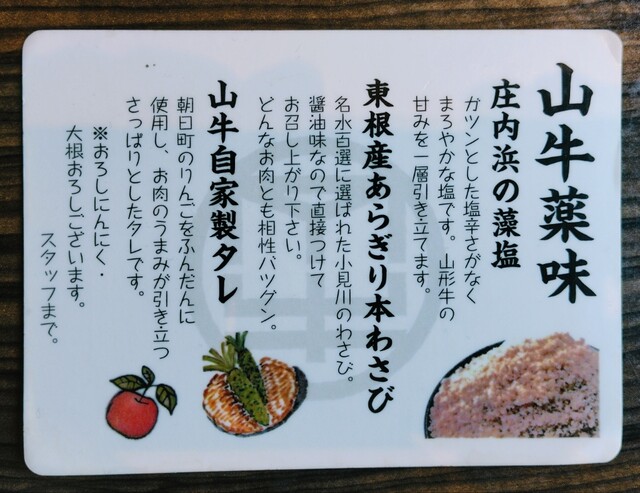 山牛薬味
庄内浜の藻塩
ガツンとした塩辛さがなく
まろやかな塩です。山形牛の
甘みを一層引き立てます。
東根産あらぎり本わさび
名水百選に選ばれた小見川のわさび。
醤油味なので直接つけて
お召し上がり下さい。
どんなお肉とも相性バツグン。
山牛自家製タレ
朝日町のりんごをふんだんに
使用し、お肉のうまみが引き立つ
さっぱりとしたタレです。
※おろしにんにく・
大根おろしございます。
スタッフまで。